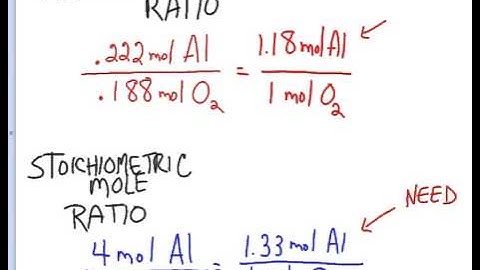 RATIO
.222 mol Al = 1.18 mol Al
.188 mol O2 1 mol O2
STOICHIOMETRIC
MOLE
RATIO
NEED
4 mol Al = 1.33 mol Al